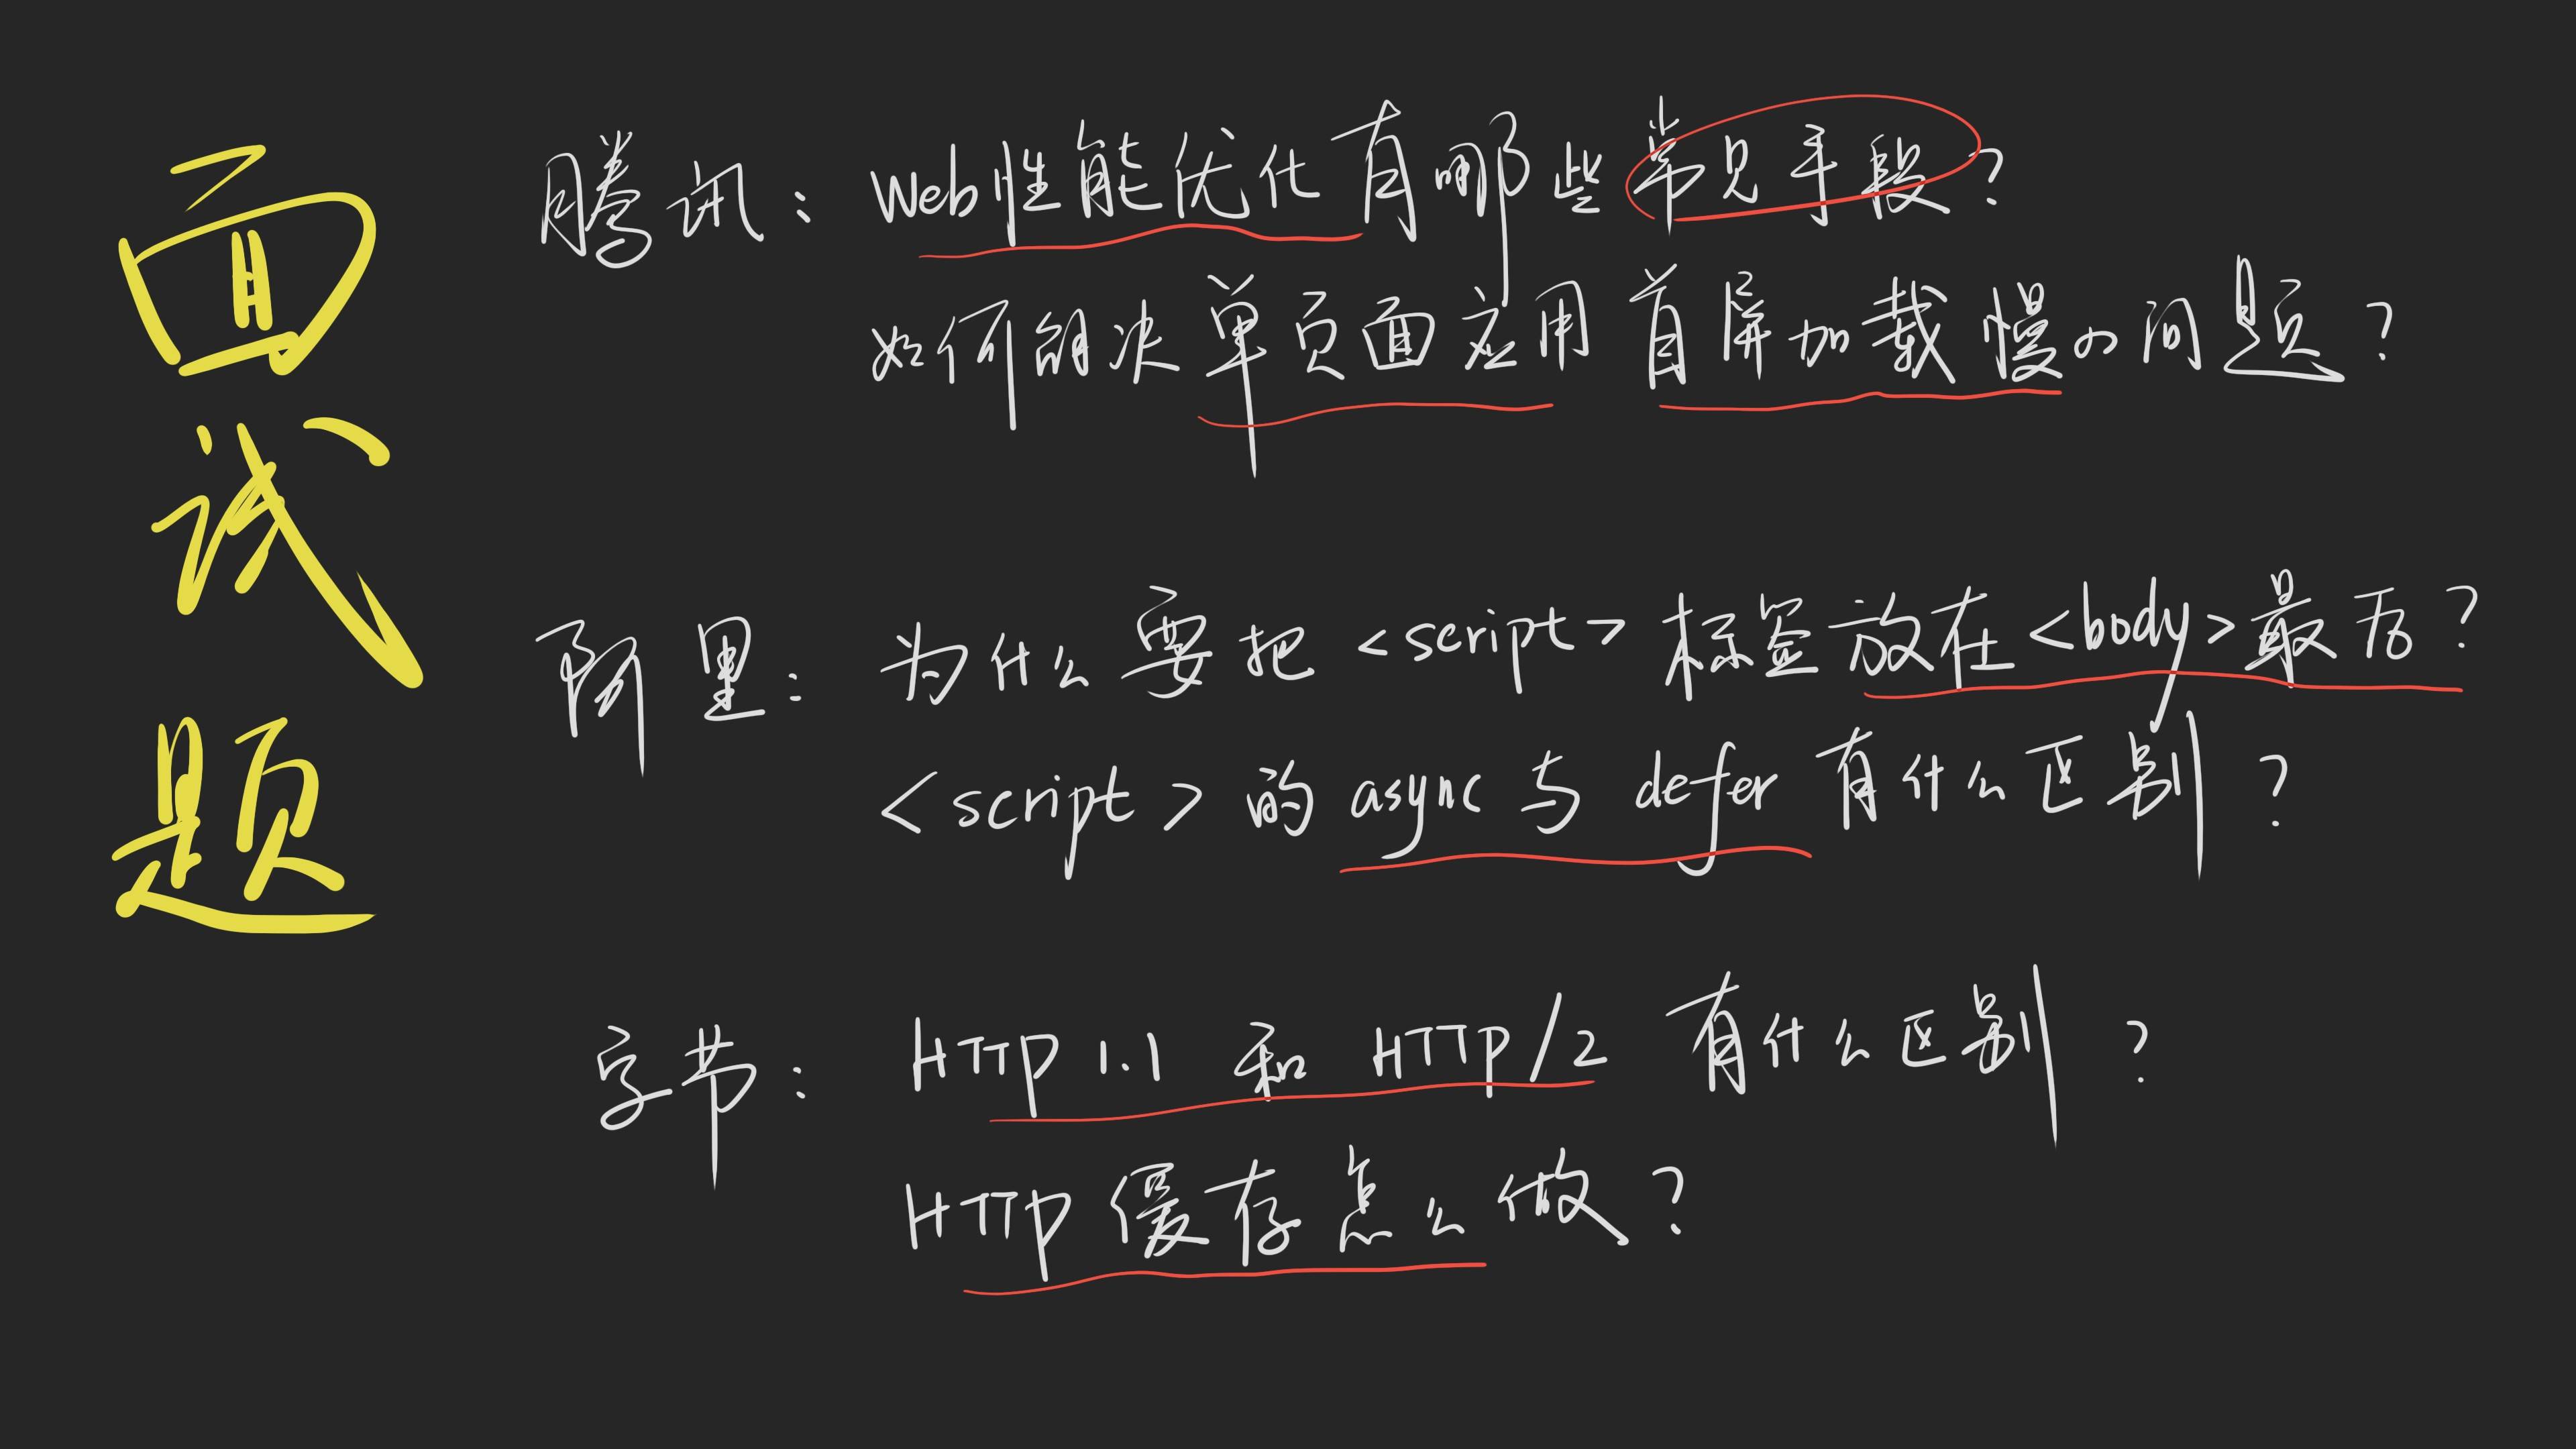 面试题
腾讯：Web性能优化有哪些常见手段？
如何解决单页面应用首屏加载慢的问题？
阿里：为什么要把<script>标签放在<body>最后？
<script>的async与defer有什么区别？
字节：HTTP 1.1 和 HTTP/2 有什么区别？
HTTP缓存怎么做？